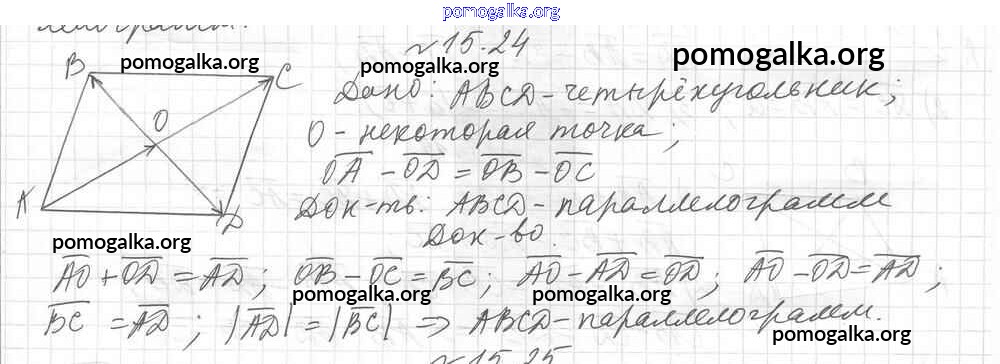 pomogalka.org
№15.24
pomogalka.org
pomogalka.org
pomogalka.org
B
C
O
A
D
Дано: ABCD - четырёхугольник;
O - некоторая точка;
OA - OD = OB - OC
Док-ть: ABCD - параллелограмм
Док-во.
pomogalka.org
AO + OD = AD; OB - OC = BC; AO - AD = OD; AO - OD = AD;
pomogalka.org
pomogalka.org
BC = AD; |AD| = |BC| => ABCD - параллелограмм.
pomogalka.org
№15.25